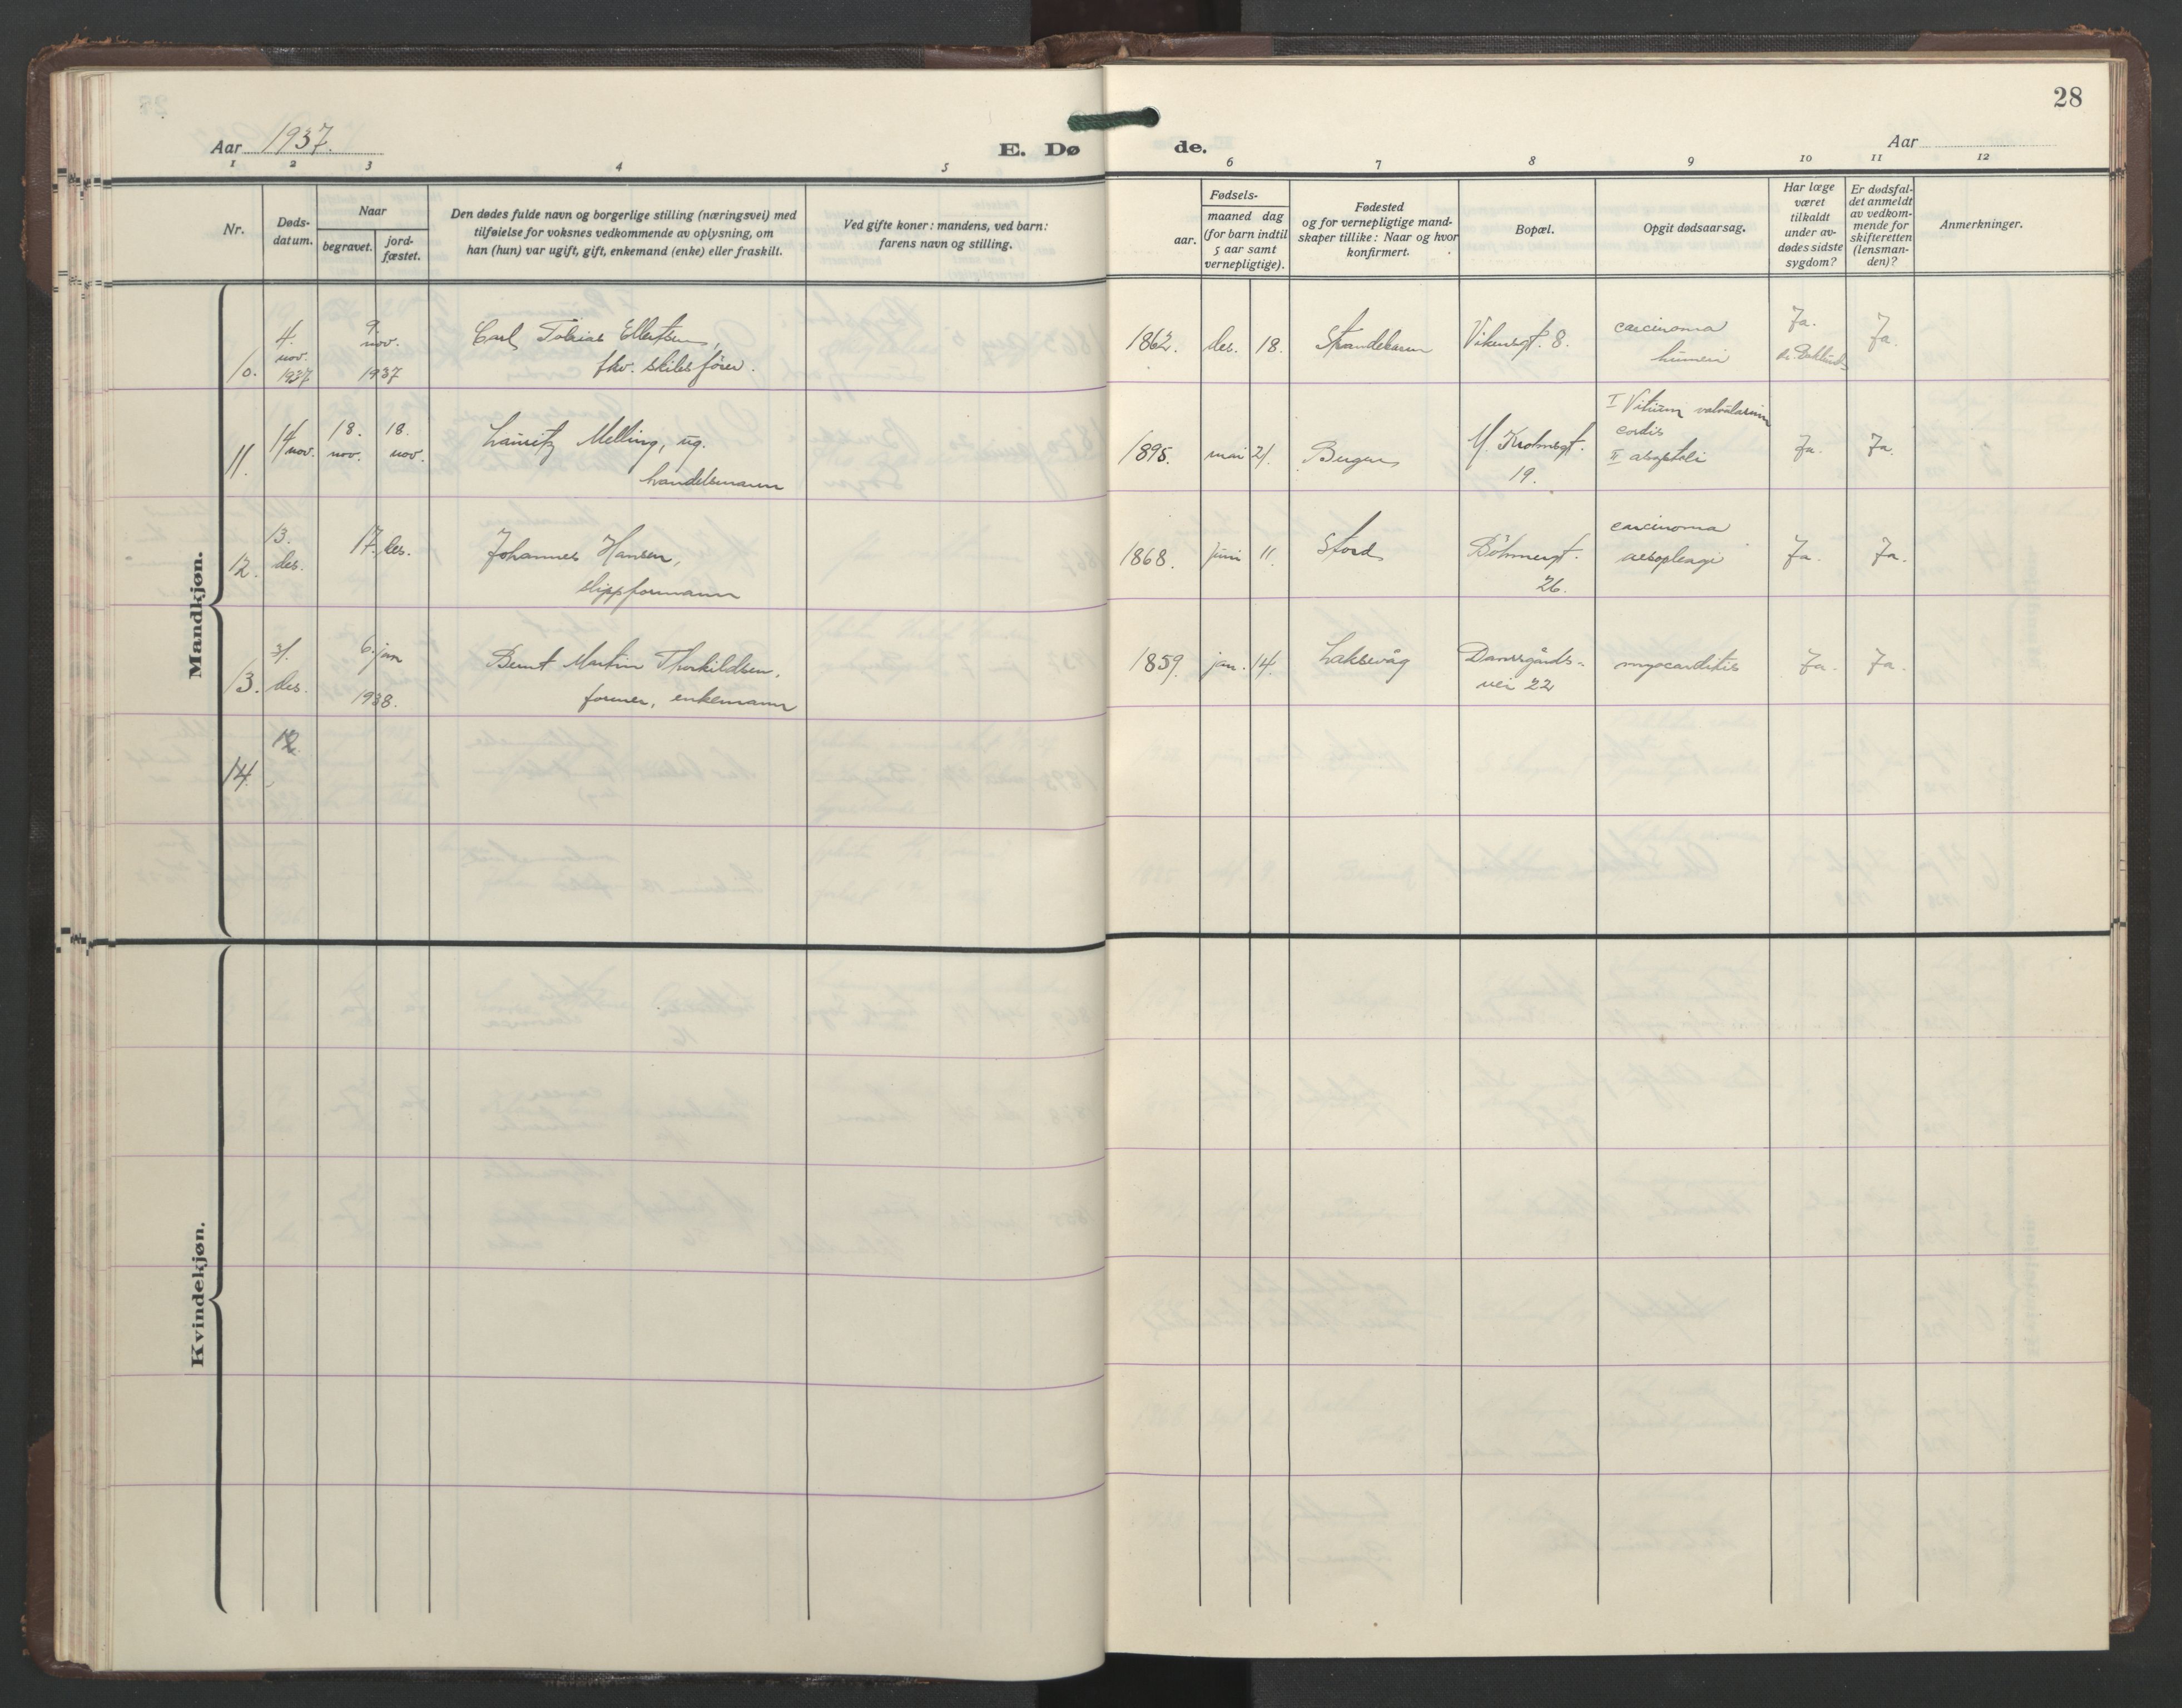 28
Aar 1937.
E. Døde.
Aar
1 2 3 4 5 6 7 8 9 10 11 12
Nr.
Døds-
datum.
Naar
begravet.
jord-
fæstet.
Den dødes fulde navn og borgerlige stilling (næringsvei) med
tilføielse for voksnes vedkommende av oplysning, om
han (hun) var ugift, gift, enkemand (enke) eller fraskilt.
Ved gifte koner: mandens, ved barn:
farens navn og stilling.
Fødsels-
aar.
maaned dag
(for barn indtil
5 aar samt
vernepligtige).
Fødested
og for vernepligtige mand-
skaper tillike: Naar og hvor
konfirmert.
Bopæl.
Opgit dødsaarsag.
Har læge
været
tilkaldt
under av-
dødes sidste
sygdom?
Er dødsfal-
det anmeldt
av vedkom-
mende for
skifteretten
(lensman-
den)?
Anmerkninger.
Mandkjøn.
10.
4.
nov.
1937
9.
nov.
1937
Carl Tobias Ellertsen,
fhv. skibsfører.
1862. des. 18. Strandebarm
Vikensgt. 8.
carcinoma
humeri
Ja.
Ja.
11.
14
nov.
18.
nov.
18.
nov.
Lauritz Melling, ug.
handelsmann
1895. mai 21. Bergen
M. Krohnsgt.
19.
I Vitium valvularum
cordis
II
Ja.
Ja.
12.
13.
des.
17. des.
Johannes Hansen,
slippformann
1868. juni 11. Stord
Böhmergt.
26.
carcinoma
Ja.
Ja.
13.
31.
des.
6. jan
1938.
Bernt Martin Thorkildsen,
former, enkemann
1859. jan. 14. Laksevåg
Damsgårds-
vei 22
myocarditis
Ja.
Ja.
14.
12
Kvindekjøn.